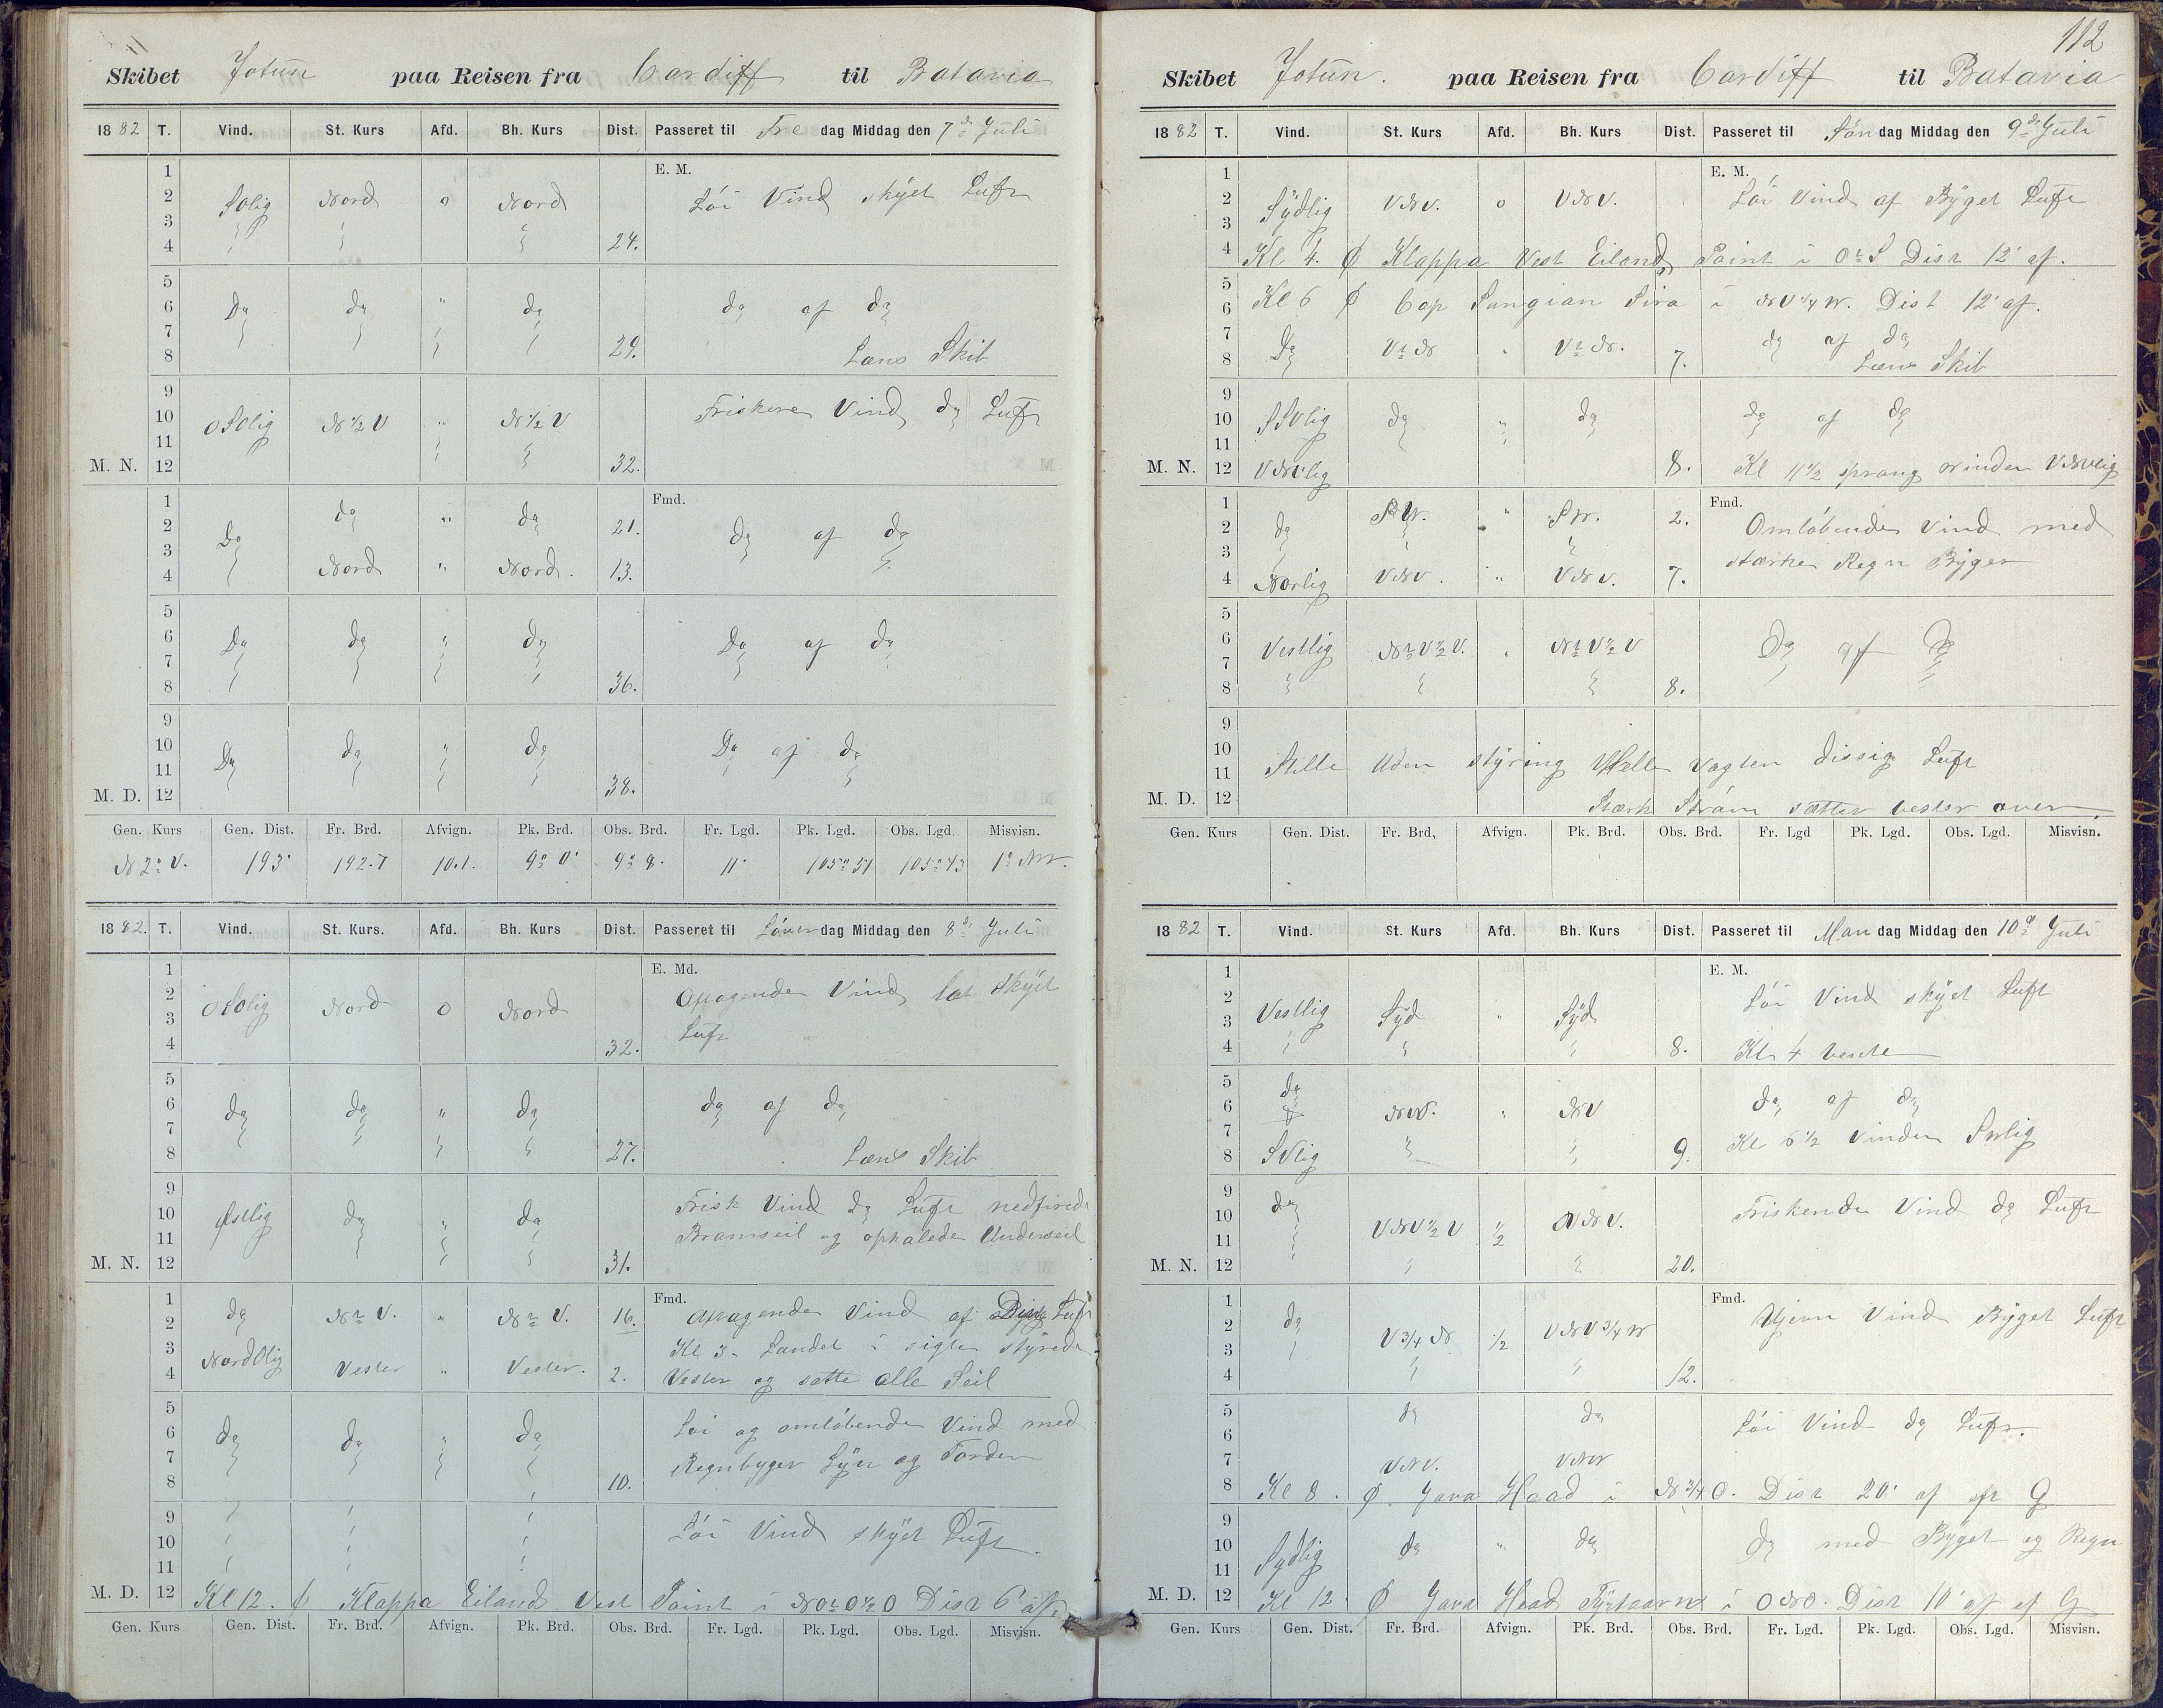 Skibet Jotun paa Reisen fra Cardiff til Batavia
1882 T. Vind. St. Kurs Afd. Bh. Kurs Dist. Passeret til Fre dag Middag den 7de Juli
E. M.
1
2 SOlig Nord 0 Nord Löi Vind skÿet Luft
3
4 24.
5
6 Do do " do do af do
7
8 29. Læns Skib
9
10 OSOlig N 1/2 V " N 1/2 V Friskere Vind do Luft
11
M. N. 12 32.
Fmd.
1
2 Do do " do 21. do af do
3
4 Nord " Nord. 13.
5
6 Do do " do Do af do
7
8 36.
9
10 Do do " do Do af do
11
M. D. 12 38.
Gen. Kurs Gen. Dist. Fr. Brd. Afvign. Pk. Brd. Obs. Brd. Fr. Lgd. Pk. Lgd. Obs. Lgd. Misvisn.
N 2° V. 193' 192.7 10.1. 9° 0' 9° 8. 11' 105° 51 105° 43 1° NW.
1882. T. Vind. St. Kurs. Afd. Bh. Kurs Dist. Passeret til Löver dag Middag den 8de Juli
E. Md.
1
2 OSOlig Nord 0 Nord Aftagende Vind let Skÿet
3 Luft
4 32.
5
6 do do " do do af do
7
8 27. Læns Skib
9
10 Östlig do " do Frisk Vind do Luft nedfirede
11 Bramseil og ophalede Underseil
M. N. 12 31.
Fmd.
1
2 do N t V. " N t V. 16. Aftagende Vind af Luft
3 Kl 3. Landet i sigte stÿrede
4 NordOlig Vester " Vester. 2. Vester og satte alle Seil
5
6 do do " do Löi og omlöbende Vind med
7 Regnbyger Lÿn og Torden
8 10.
9
10 Löi Vind skÿet Luft.
11
M. D. 12 Kl 12. Klappa Eiland Vest Point i Dist 6' af
Gen. Kurs Gen. Dist. Fr. Brd. Afvign. Pk. Brd. Obs. Brd. Fr. Lgd. Pk. Lgd. Obs. Lgd. Misvisn.
112
Skibet Jotun. paa Reisen fra Cardiff til Batavia
1882 T. Vind. St. Kurs Afd. Bh. Kurs Dist. Passeret til Sön dag Middag den 9de Juli
E. M.
1
2 Sÿdlig VNV. 0 VNV. Löi Vind af Bÿget Luft
3
4 Kl 4. Klappa Vest Eiland Point i O t S Dist 12' af.
5
6 Kl 6 Cap Sangian Sira i NV 1/4 W. Dist 12' af.
7
8 Do V t N " V t N. 7. do af do
Læns Skib
9
10 SSVlig do " do do af do
11
M. N. 12 VNVlig 8. Kl 11 1/2 sprang vinden VNVlig
Fmd.
1
2 do SW. " SW. 2. Omlöbende Vind med
3 stærke Regn Bÿger
4 Norlig VNV. " VNV. 7.
5
6 Vestlig N t V 1/2 V. " N t V 1/2 V Do af Do
7
8 8.
9
10
11 Stille Uden stÿring Hele Vagten dissig Luft
M. D. 12 Stærk Ström sætter vester over
Gen. Kurs Gen. Dist. Fr. Brd, Afvign. Pk. Brd. Obs. Brd. Fr. Lgd Pk. Lgd. Obs. Lgd. Misvisn.
1882 T. Vind. St. Kurs Afd. Bh. Kurs Dist. Passeret til Man dag Middag den 10d Juli
E. M.
1
2 Löi Vind skÿet Luft
3 Vestlig Sÿd " Sÿd
4 8. Kl 4 vendte
5
6 do NW. " NV do af do
7 Kl 6 1/2 Vinden SWlig
8 SVlig 9.
9
10 do VNV 1/2 V 1/2 VNV. Friskende Vind do Luft
11
M. N. 12 20.
Fmd.
1
2 do V 3/4 N. 1/2 VNV 3/4 W Ujevn Vind Bÿget Luft
3
4 12.
5 do do
6 Löi Vind do Luft.
7 VNV. VNW
8 Kl 8. Java Head i N 3/4 O. Dist 20' af
9
10 Sydlig do " do do med Bÿget og Regn
11
M. D. 12 Kl 12. Java Head Fyrtaarn i ONO. Dist 10' af
Gen. Kurs Gen. Dist. Fr. Brd. Afvign. Pk. Brd. Obs. Brd. Fr. Lgd. Pk. Lgd. Obs. Lgd. Misvisn.